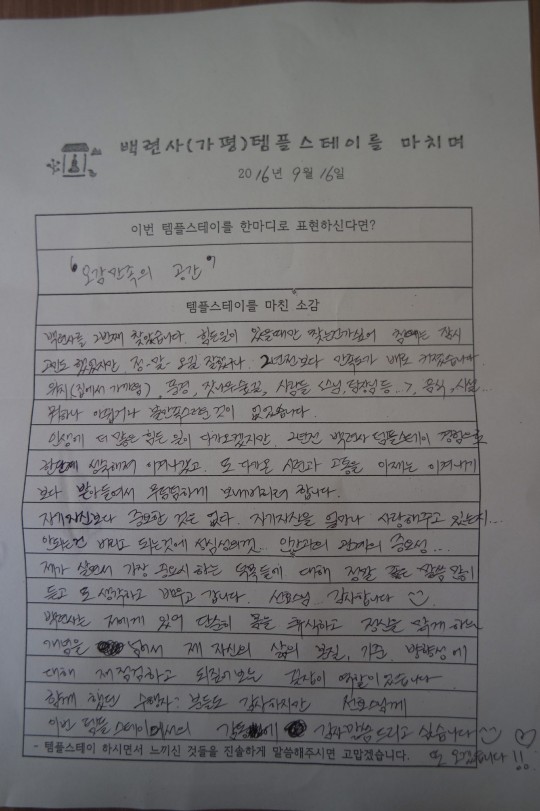 백련사(가평)템플스테이를 마치며
2016년 9월 16일
이번 템플스테이를 한마디로 표현하신다면?
"오감만족의 공간"
템플스테이를 마친 소감
백련사를 2번째 찾았습니다. 힘든일이 있을때만 찾는건가싶어 잠시
고민도 했었지만 정-말- 오길 잘했구나. 2년전보다 만족도가 배로 커졌습니다
위치(집에서 가까움), 풍경, 사람들 (스님, 팀장님 등..), 음식, 시설..
뭐하나 아쉽거나 불만족스러운 것이 없었습니다.
인생에 더 많은 힘든 일이 다가오겠지만, 2년전 백련사 템플스테이 경험으로
한단계 성숙해져 이겨나갔고. 또 다가올 시련과 고통을 이제는 이겨내기
보다 받아들여서 무덤덤하게 보내버리려 합니다.
자기자신보다 중요한 것은 없다. 자기자신을 얼마나 사랑해주고 있는지...
안되는건 버리고 되는것에 인간과의 관계의 중요성...
제가 살면서 가장 중요시 하는 덕목들에 대해 정말 좋은 말씀 많이
듣고 또 생각하고 배우고 갑니다. 선호스님 감사합니다
백련사는 저에게 있어 단순히 몸을 휴식하고 정신을 맑게 하는
개념을 넘어서 제 자신의 삶의 본질, 기준, 방향성에
대해 재점검하고 되짚어보는 역할이 있습니다
함께 했던 수행자 분들도 감사하지만 선호스님께
이번 템플스테이에서의 감동에 감사말씀드리고 싶습니다
- 템플스테이 하시면서 느끼신 것들을 진솔하게 말씀해주시면 고맙겠습니다.
또 오겠습니다!!